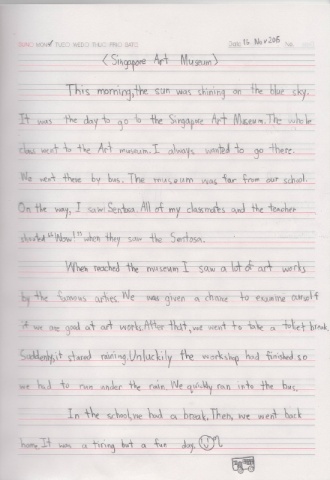 SUN MON TUE WED THU FRI SAT Date 16. Nov 2015 No.
< Singapore Art Museum >
This morning, the sun was shining on the blue sky.
It was the day to go to the Singapore Art Museum. The whole
class went to the Art museum. I always wanted to go there.
We went there by bus. The museum was far from our school.
On the way, I saw Sentosa. All of my classmates and the teacher
shouted "Wow!" when they saw the Sentosa.
When reached the museum I saw a lot of art works
by the famous We was given a chance to examine ourself
if we are good at art works. After that, we went to take a toilet break.
Suddenly, it started raining. Unluckily the workshop had finished so
we had to run under the rain. We quickly ran into the bus.
In the school, we had a break. Then, we went back
home. It was a tiring but a fun day.